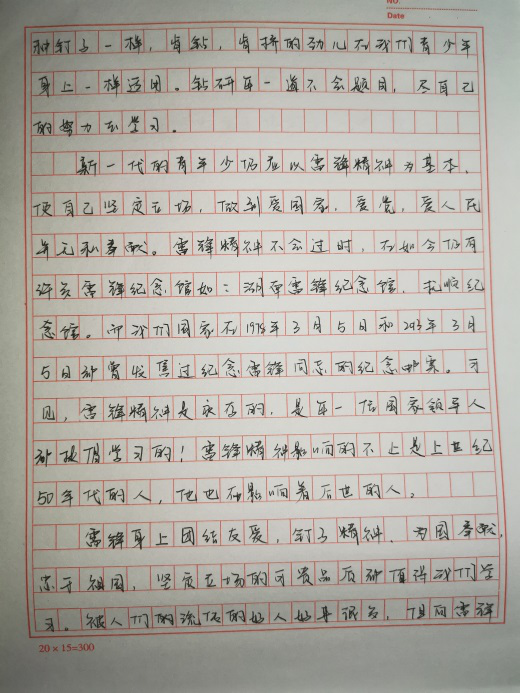 NO.
Date
神钉子一样，肯钻，肯挤的劲儿在我们青少年
身上一样适用。钻研每一道不会题目，尽自己
的努力去学习。
新一代的青年少仍应以雷锋精神为基本，
使自己坚定立场，做到爱国家，爱党，爱人民
并无私奉献。雷锋精神不会过时，在如今仍有
许多雷锋纪念馆如：湖南雷锋纪念馆，抚顺纪
念馆。而我们国家在1978年3月5日和2013年3月
5日都曾发售过纪念雷锋同志的纪念邮票。可
见，雷锋精神是永存的，是每一位国家领导人
都提倡学习的！雷锋精神影响的不止是上世纪
50年代的人，他也在影响着后世的人。
雷锋身上团结友爱，钉子精神，为国奉献，
忠于祖国，坚定立场的可贵品质都值得我们学
习。被人们的流传的好人好事很多，但向雷锋
20×15=300